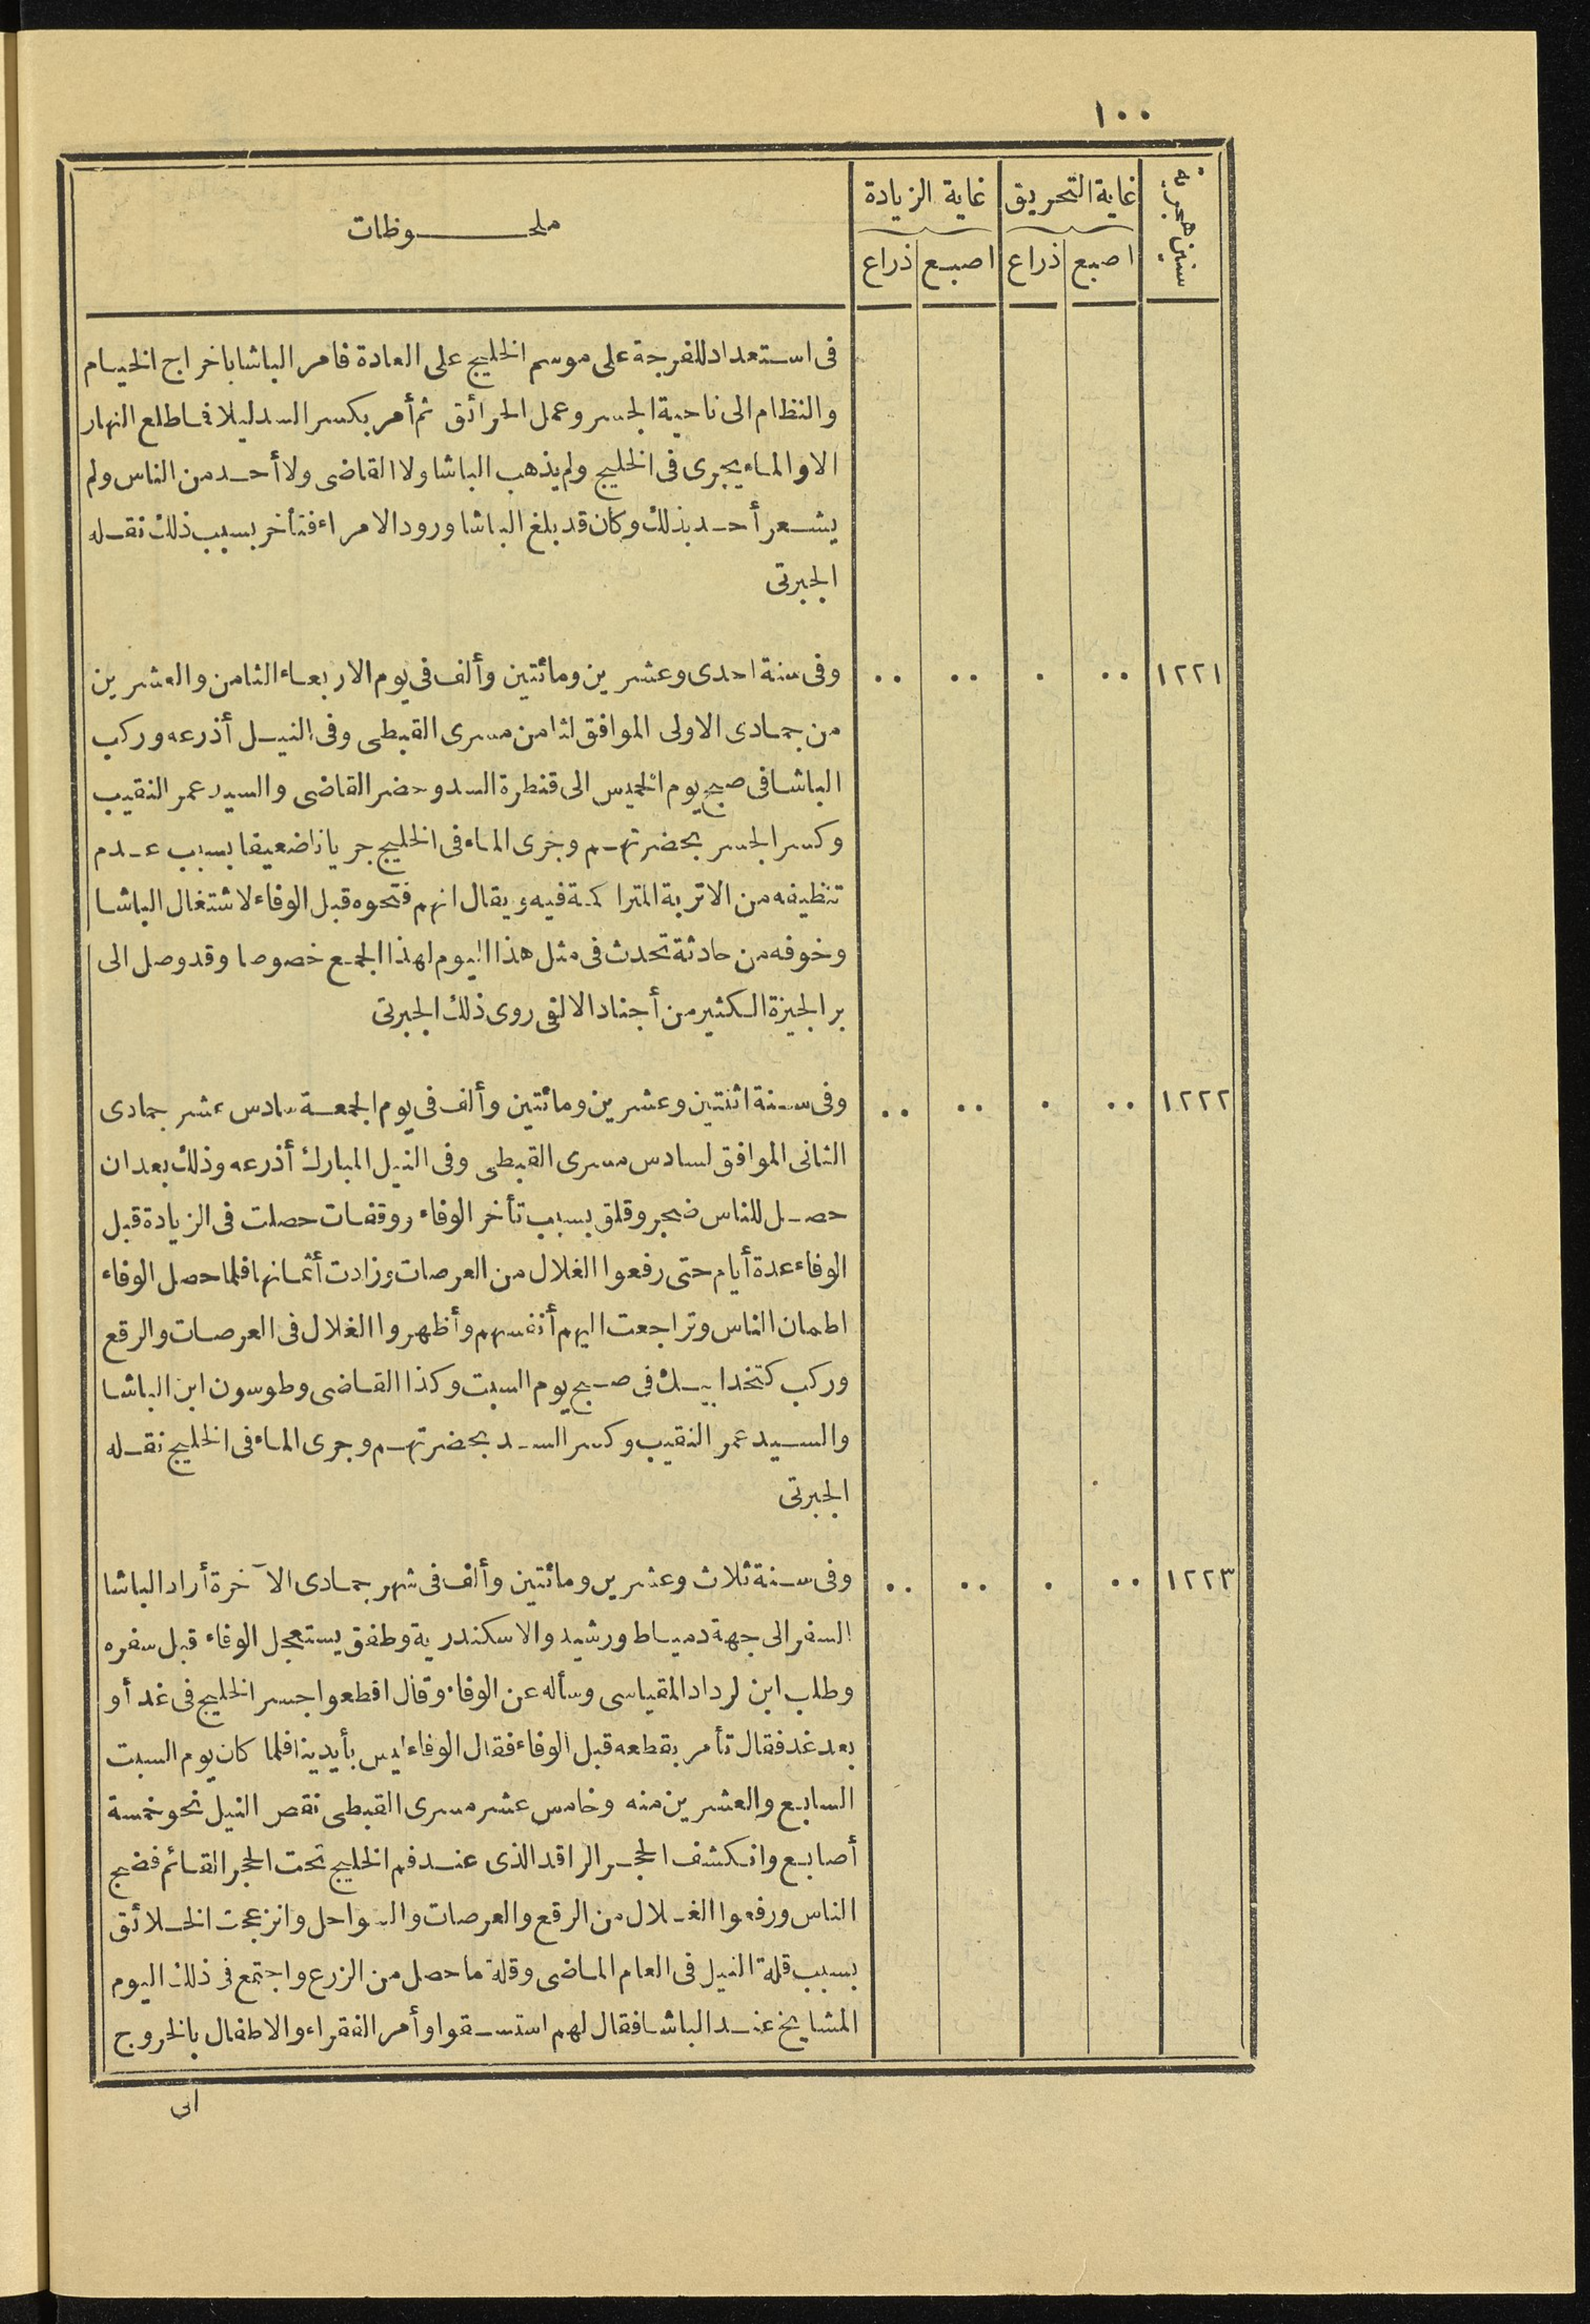 ١٠٠
سنين هجرية
غاية التحريق
غاية الزيادة
ملحوظات
اصبع ذراع اصبع ذراع
فى استعداد للفرجة على موسم الخليج على العادة فامر الباشا باخراج الخيام
والنظام الى ناحية الجسر وعمل الحرائق ثم أمر بكسر السد ليلا فما طلع النهار
الا والماء يجرى فى الخليج ولم يذهب الباشا ولا القاضى ولا أحد من الناس ولم
يشعر أحد بذلك وكان قد بلغ الباشا ورود الامراء فتأخر بسبب ذلك نقله
الجبرتى
١٢٢١ ٠٠ ٠ ٠٠ ٠٠ وفى سنة احدى وعشرين ومائتين وألف فى يوم الاربعاء الثامن والعشرين
من جمادى الاولى الموافق لثامن مسرى القبطى وفى النيل أذرعه وركب
الباشا فى صبح يوم الخميس الى قنطرة السد وحضر القاضى والسيد عمر النقيب
وكسر الجسر بحضرتهم وجرى الماء فى الخليج جريانا ضعيفا بسبب عدم
تنظيفه من الاتربة المتراكمة فيه ويقال انهم فتحوه قبل الوفاء لاشتغال الباشا
وخوفه من حادثة تحدث فى مثل هذا اليوم لهذا الجمع خصوصا وقد وصل الى
بر الجيزة الكثير من أجناد الالفى روى ذلك الجبرتى
١٢٢٢ ٠٠ ٠ ٠٠ ٠٠ وفى سنة اثنتين وعشرين ومائتين وألف فى يوم الجمعة سادس عشر جمادى
الثانى الموافق لسادس مسرى القبطى وفى النيل المبارك أذرعه وذلك بعد ان
حصل للناس ضجر وقلق بسبب تأخر الوفاء ووقفات حصلت فى الزيادة قبل
الوفاء عدة أيام حتى رفعوا الغلال من العرصات وزادت أثمانها فلما حصل الوفاء
اطمان الناس وتراجعت اليهم أنفسهم وأظهروا الغلال فى العرصات والرقع
وركب كتخدا بيك فى صبح يوم السبت وكذا القاضى وطوسون ابن الباشا
والسيد عمر النقيب وكسر السد بحضرتهم وجرى الماء فى الخليج نقله
الجبرتى
١٢٢٣ ٠٠ ٠ ٠٠ ٠٠ وفى سنة ثلاث وعشرين ومائتين وألف فى شهر جمادى الآخرة أراد الباشا
السفر الى جهة دمياط ورشيد والاسكندرية وطفق يستعجل الوفاء قبل سفره
وطلب ابن لرداد المقياسى وسأله عن الوفاء وقال اقطعوا جسر الخليج فى غد أو
بعد غد فقال تأمر بقطعه قبل الوفاء فقال الوفاء ليس بأيدينا فلما كان يوم السبت
السابع والعشرين منه وخامس عشر مسرى القبطى نقص النيل نحو خمسة
أصابع وانكشف الحجر الراقد الذى عند فم الخليج تحت الحجر القائم فضج
الناس ورفعوا الغلال من الرقع والعرصات والسواحل وانزعجت الخلائق
بسبب قلة النيل فى العام الماضى وقلة ما حصل من الزرع واجتمع فى ذلك اليوم
المشايخ عند الباشا فقال لهم استسقوا وأمر الفقراء والاطفال بالخروج
الى